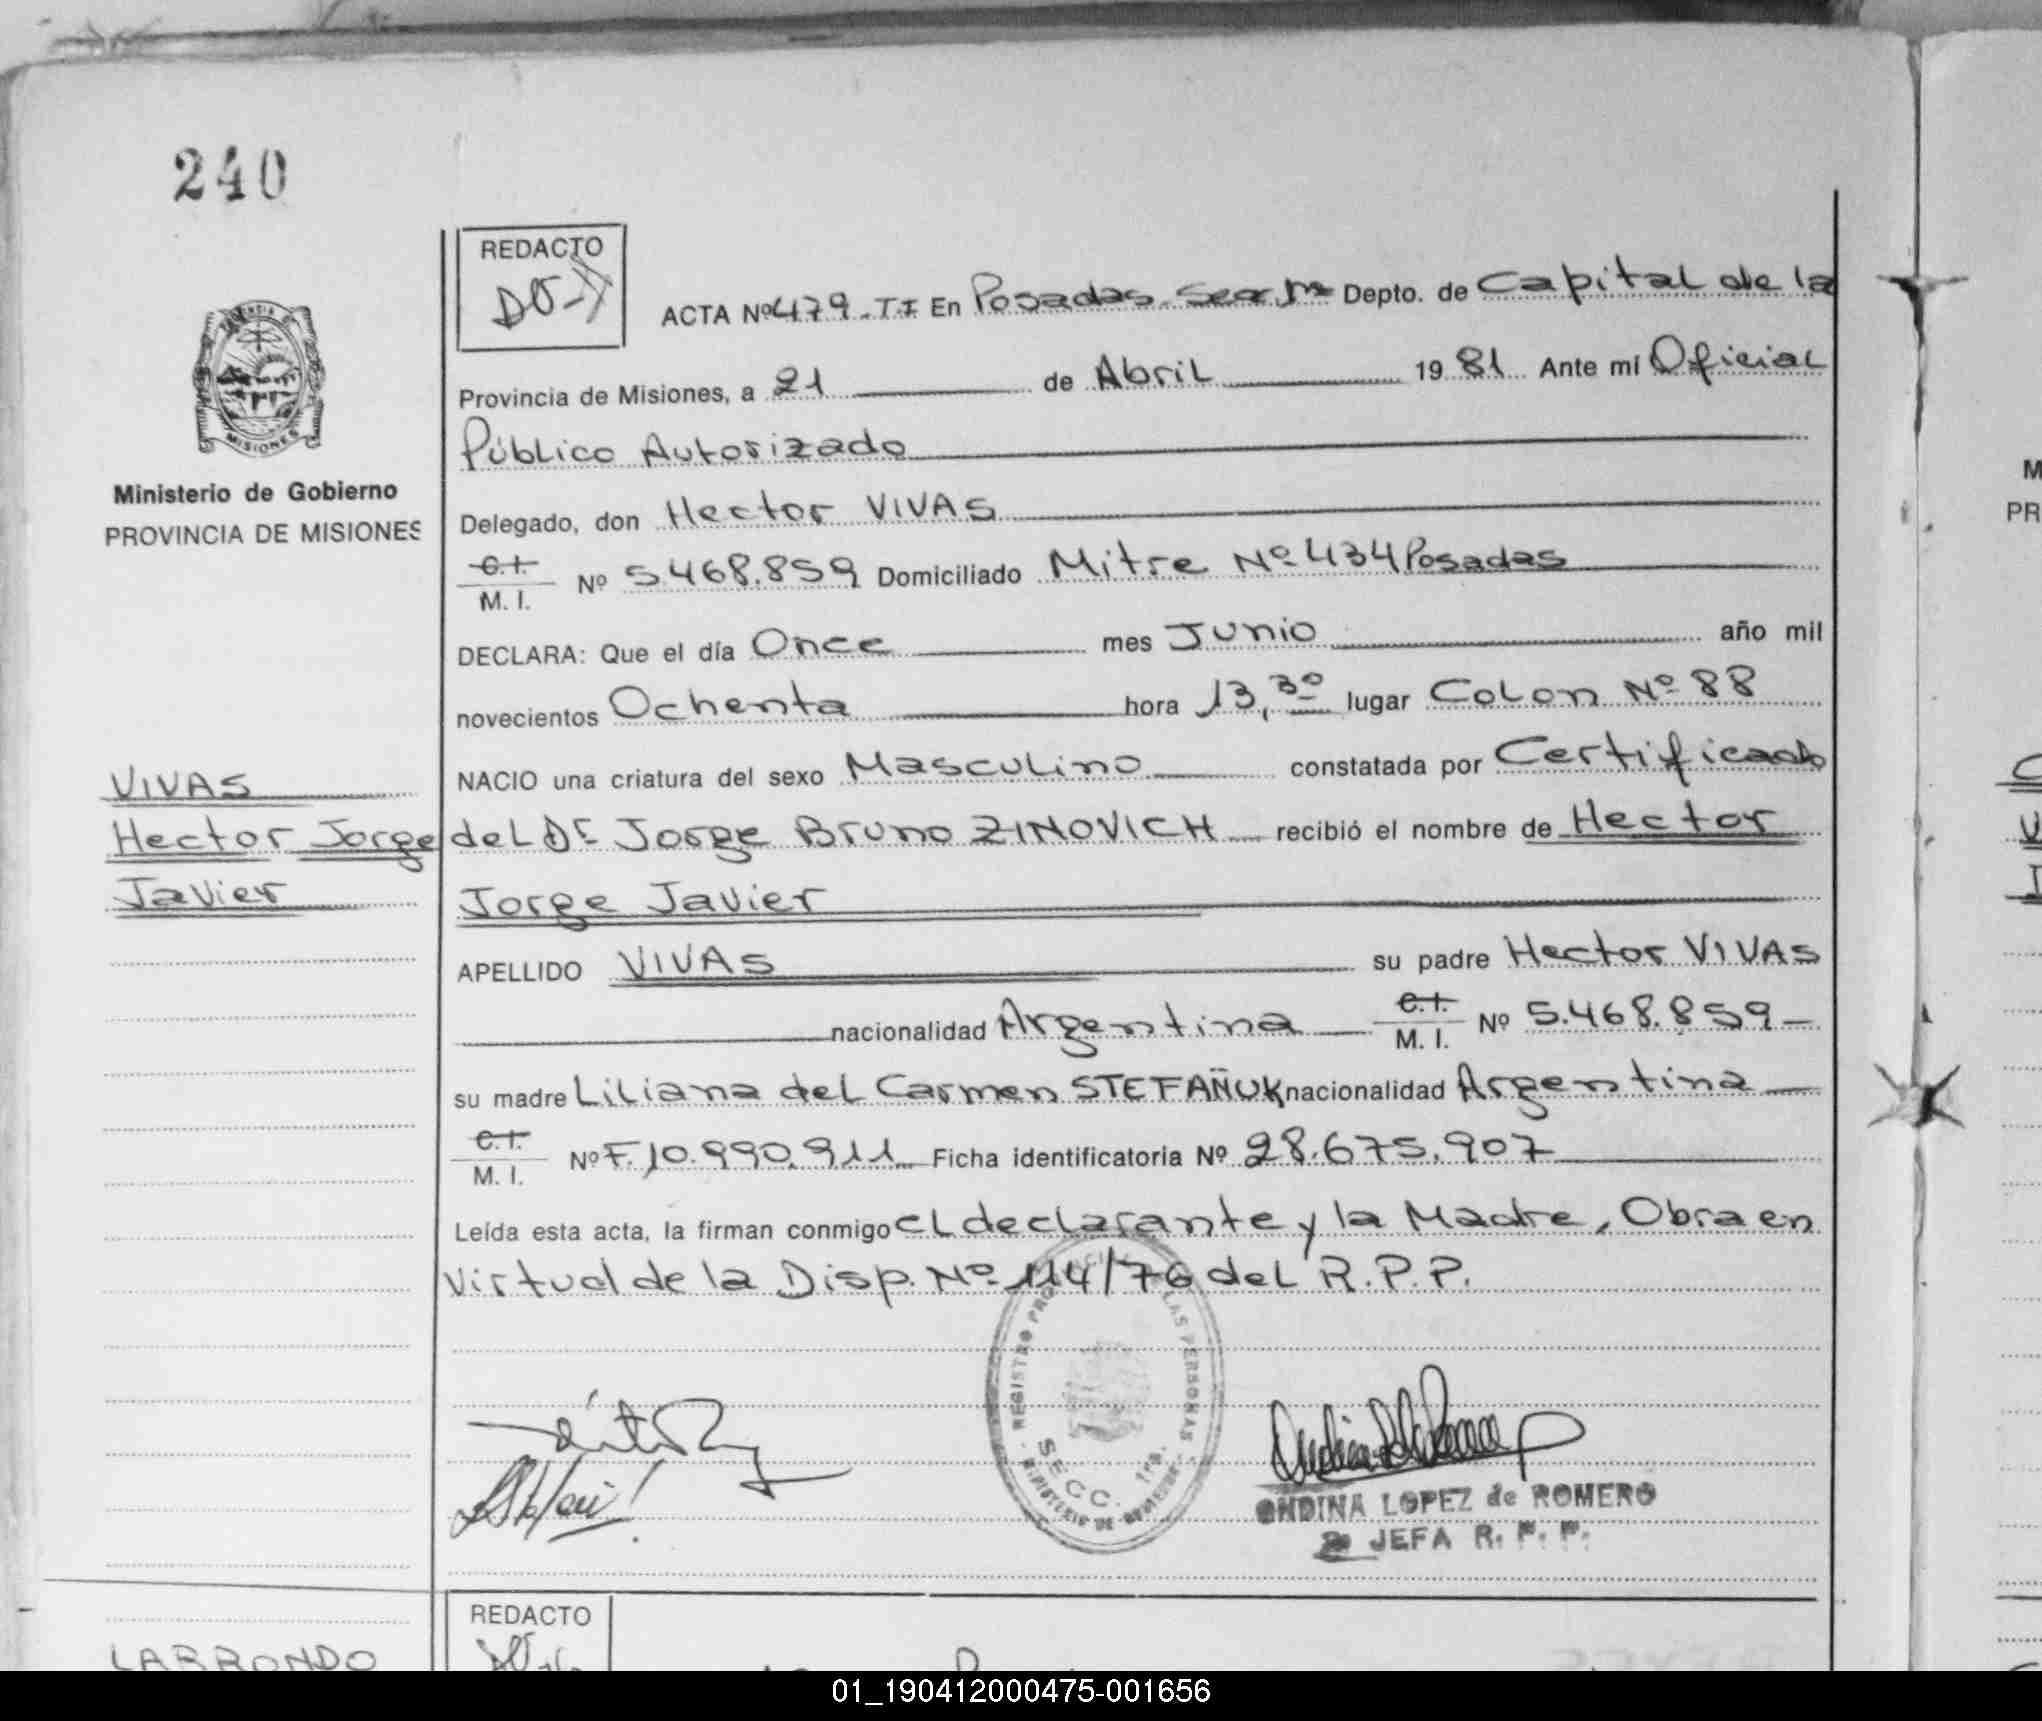 240
REDACTO
ACTA Nº 479-TI En Posadas Secc 1ra Depto. de Capital de la
Provincia de Misiones, a 21 de Abril 1981 Ante mí Oficial
Público Autorizado
Delegado, don Hector VIVAS
C.I.
M. I. Nº 5.468.859 Domiciliado Mitre Nº 434 Posadas
DECLARA: Que el día Once mes Junio año mil
novecientos Ochenta hora 13,30 lugar Colon Nº 88
NACIO una criatura del sexo Masculino constatada por Certificado
del Dr Jorge Bruno ZINOVICH recibió el nombre de Hector
Jorge Javier
APELLIDO VIVAS su padre Hector VIVAS
nacionalidad Argentina C.I. M. I. Nº 5.468.859
su madre Liliana del Carmen STEFAÑUK nacionalidad Argentina
C.I.
M. I. Nº F.10.990.911 Ficha identificatoria Nº 28.675.907
Leída esta acta, la firman conmigo el declarante y la Madre, Obra en
virtud de la Disp. Nº 114/76 del R.P.P.
Ministerio de Gobierno
PROVINCIA DE MISIONES
VIVAS
Hector Jorge
Javier
MISIONES
REGISTRO PROVINCIAL DE LAS PERSONAS
SECC. 1ra.
ONDINA LOPEZ de ROMERO
JEFA R. P. P.
REDACTO
LARRONDO
M
PR
01_190412000475-001656